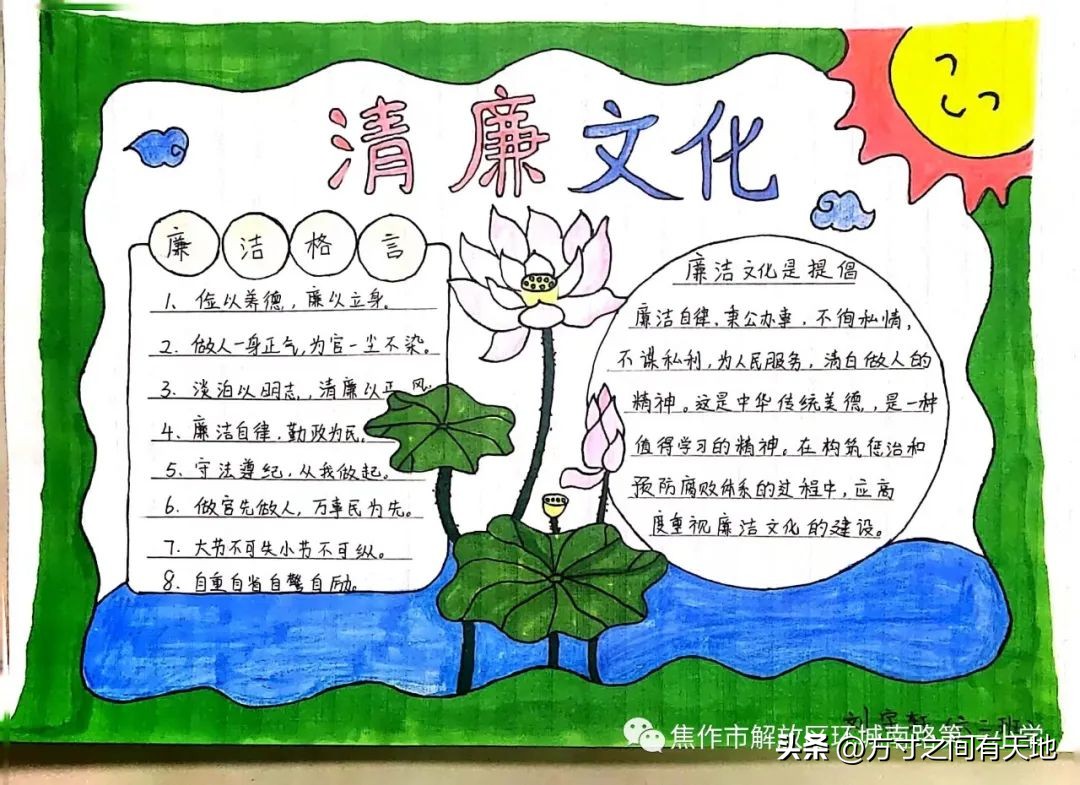 清廉文化
廉洁格言
1、俭以养德，廉以立身。
2、做人一身正气，为官一尘不染。
3、淡泊以明志，清廉以正风
4、廉洁自律，勤政为民。
5、守法遵纪，从我做起。
6、做官先做人，万事民为先。
7、大节不可失小节不可纵。
8、自重自省自警自励。
廉洁文化是提倡
廉洁自律，秉公办事，不徇私情，
不谋私利，为人民服务，清白做人的
精神。这是中华传统美德，是一种
值得学习的精神。在构筑惩治和
预防腐败体系的过程中，应高
度重视廉洁文化的建设。
焦作市解放区环城南路第一小学
头条 @方寸之间有天地